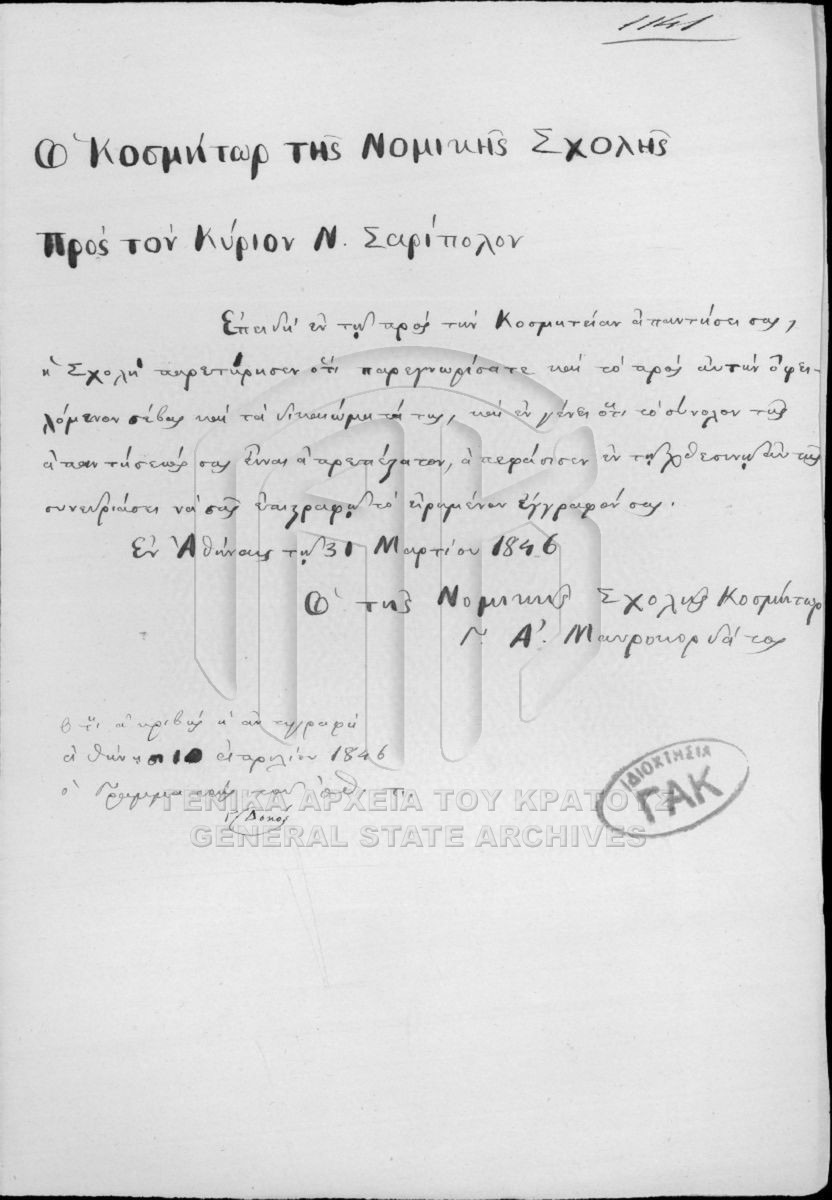 1141
Ὁ Κοσμήτωρ τῆς Νομικῆς Σχολῆς
Πρὸς τὸν Κύριον Ν. Σαρίπολον
Ἐπειδὴ ἐν τῇ πρὸς τὴν Κοσμητείαν ἀπαντήσει σας,
ἡ Σχολὴ παρετήρησεν ὅτι παρεγνωρίσατε καὶ τὸ πρὸς αὐτὴν ὀφει-
λόμενον σέβας καὶ τὰ δικαιώματά της, καὶ ἐν γένει ὅτι τὸ σύνολον τῆς
ἀπαντήσεώς σας εἶναι ἀπρεπέστατον, ἀπεφάσισεν ἐν τῇ χθεσινῇ αὐτῆς
συνεδριάσει νὰ σᾶς ἐπιστραφῇ τὸ εἰρημένον ἔγγραφόν σας.
Ἐν Ἀθήναις τῇ 31 Μαρτίου 1846
Ὁ τῆς Νομικῆς Σχολῆς Κοσμήτωρ
Γ. Α. Μαυροκορδάτος
ὅτι ἀκριβὴς ἡ ἀντιγραφὴ
Ἀθήνησι 10 ἀπριλίου 1846
ὁ Γραμματεὺς τοῦ
Δοκός
ΙΔΙΟΚΤΗΣΙΑ
ΓΑΚ
ΓΕΝΙΚΑ ΑΡΧΕΙΑ ΤΟΥ ΚΡΑΤΟΥΣ
GENERAL STATE ARCHIVES